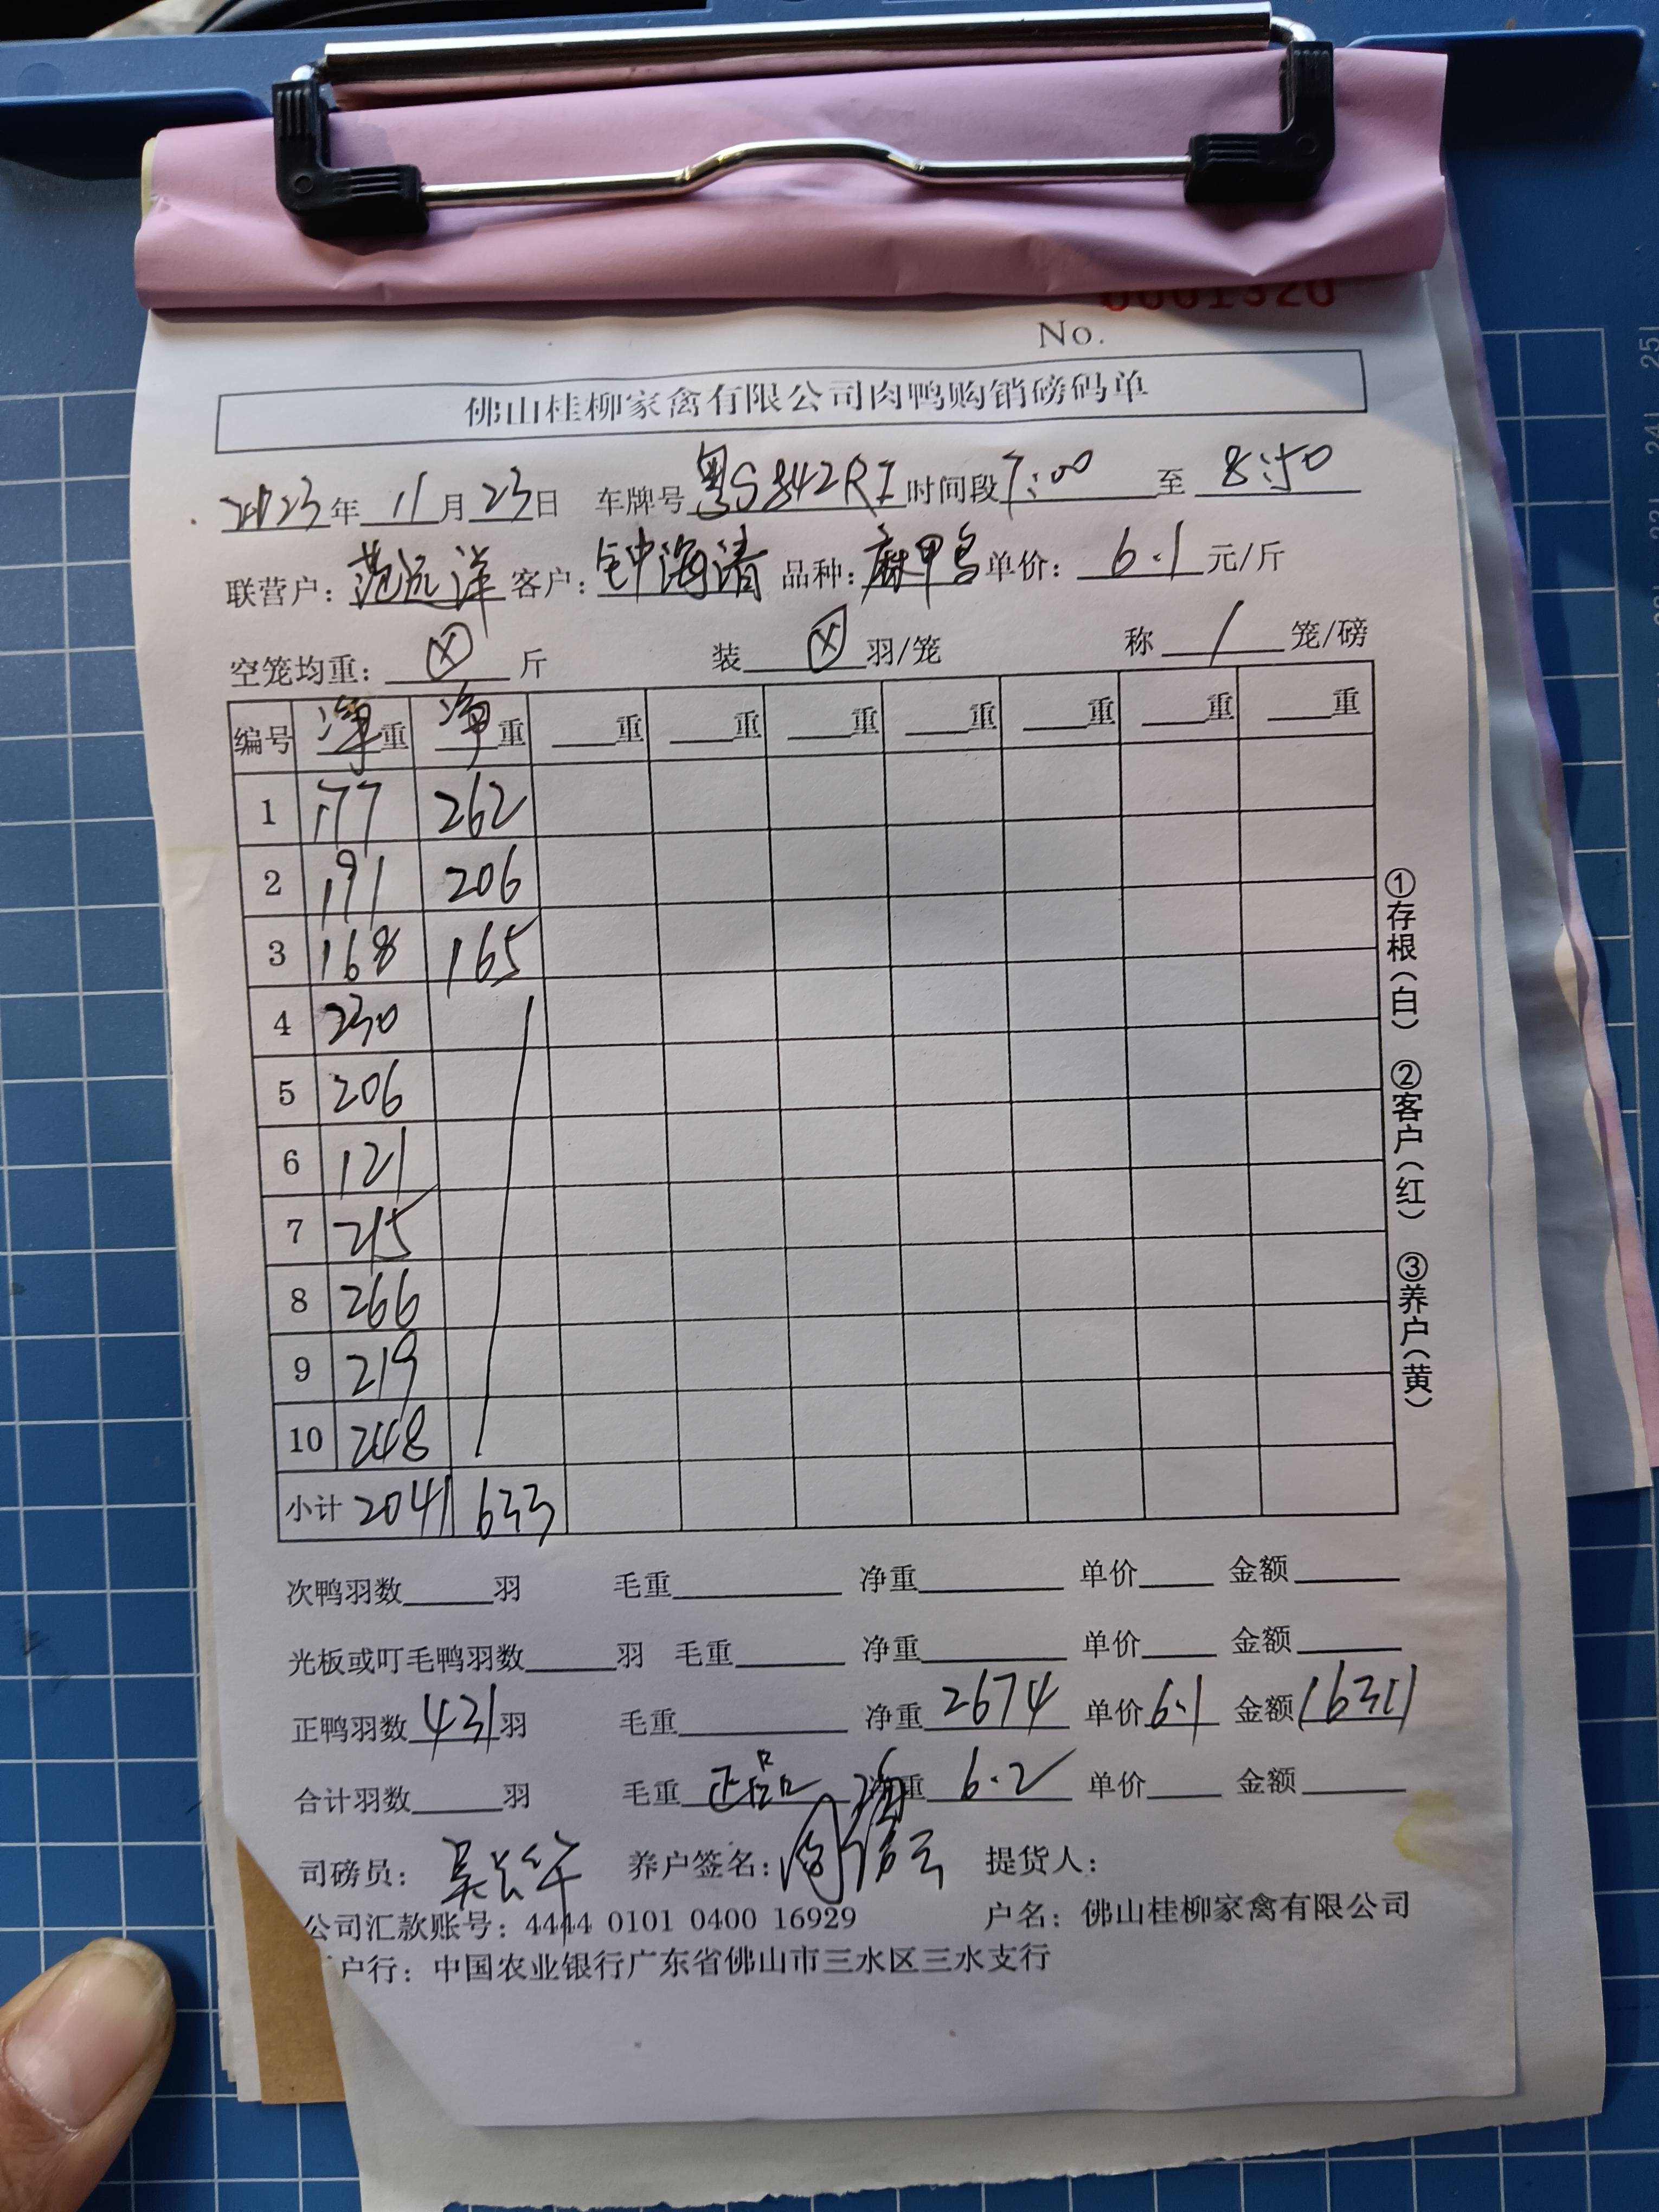 0001320
No.
佛山桂柳家禽有限公司肉鸭购销磅码单
2023年 11月23日 车牌号粤S842RZ时间段7:00至 8:50
联营户：范远洋 客户：钟海清 品种：麻鸭 单价：6.1元/斤
空笼均重：ⓧ斤 装ⓧ羽/笼 称/笼/磅
编号 净重 净重 重 重 重 重 重 重 重
1 177 262
2 191 206
3 168 165
4 230
5 206
6 121
7 215
8 266
9 219
10 248
小计 2041 633
次鸭羽数 羽 毛重 净重 单价 金额
光板或叮毛鸭羽数 羽 毛重 净重 单价 金额
正鸭羽数431羽 毛重 净重2674 单价6.1 金额16311
合计羽数 羽 毛重 正品 净重 6.2 单价 金额
司磅员： 养户签名： 提货人：
公司汇款账号：4444 0101 0400 16929 户名：佛山桂柳家禽有限公司
户行：中国农业银行广东省佛山市三水区三水支行
①存根（白） ②客户（红） ③养户（黄）